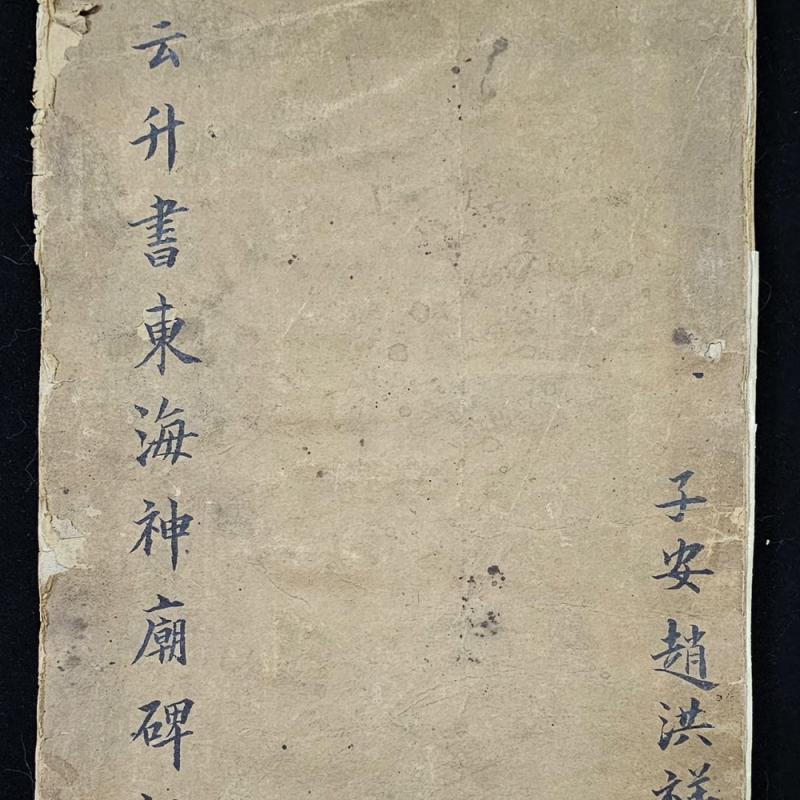 子安趙洪祥
云升書東海神廟碑